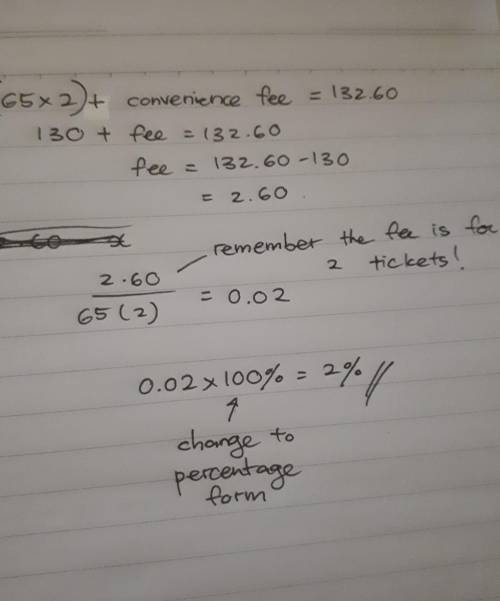 (65 × 2) + convenience fee = 132.60
130 + fee = 132.60
fee = 132.60 - 130
= 2.60
remember the fee is for
2 tickets!
2.60 / 65(2) = 0.02
0.02 × 100% = 2% //
↑
change to
percentage
form